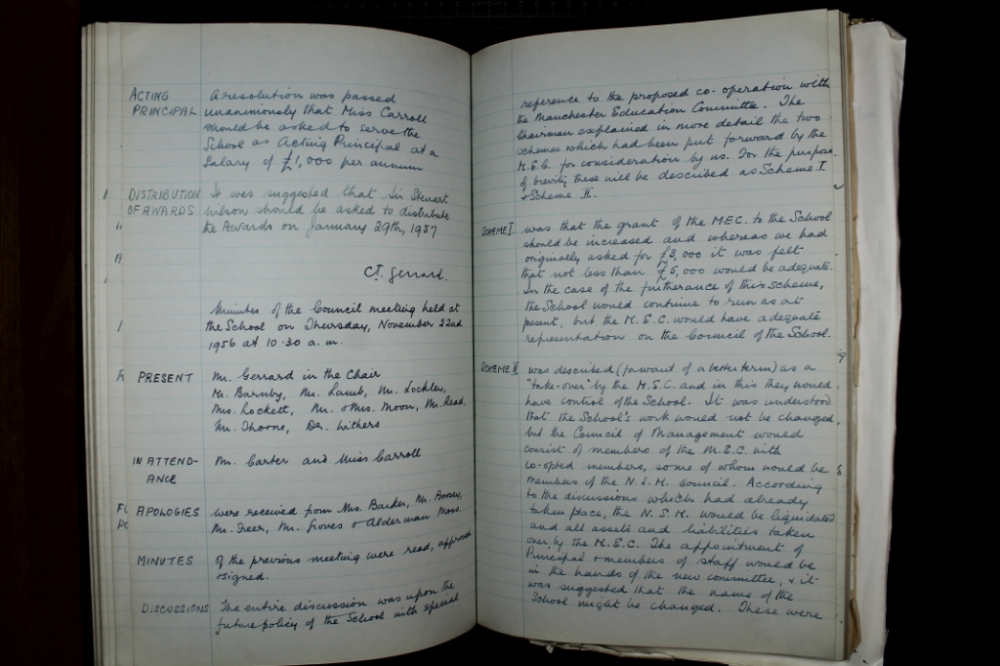 ACTING PRINCIPAL
A resolution was passed
unanimously that Miss Carroll
should be asked to serve the
School as Acting Principal at a
Salary of £1,000 per annum
DISTRIBUTION OF AWARDS
It was suggested that Sir Steuart
Wilson should be asked to distribute
the Awards on January 29th, 1957
C.T. Gerrard.
Minutes of the Council meeting held at
the School on Thursday, November 22nd
1956 at 10.30 a.m.
PRESENT
Mr. Gerrard in the Chair
Mr. Barnby, Mr. Lamb, Mr. Lochlen,
Mrs. Lockett, Mr. & Mrs. Moon, Mr. Read,
Mr. Thorne, Dr. Withers
IN ATTEND-
ANCE
Mr. Carter and Miss Carroll
APOLOGIES
were received from Mrs. Barker, Mr. Boosey,
Mr. Freer, Mr. Groves & Alderman Moss.
MINUTES
of the previous meeting were read, approved
& signed.
DISCUSSIONS
The entire discussion was upon the
future policy of the School with special
reference to the proposed co-operation with
the Manchester Education Committee. The
Chairman explained in more detail the two
schemes which had been put forward by the
M.E.C. for consideration by us. For the purpose
of brevity these will be described as Scheme I
& Scheme II.
SCHEME I.
was that the grant of the MEC. to the School
should be increased and whereas we had
originally asked for £3,000 it was felt
that not less than £5,000 would be adequate.
In the case of the furtherance of this scheme,
the School would continue to run as at
present, but the M.E.C. would have adequate
representation on the Council of the School.
SCHEME II
was described (for want of a better term) as a
"take-over" by the M.E.C. and in this they would
have control of the School. It was understood
that the School's work would not be changed,
but the Council of Management would
consist of members of the M.E.C. with
co-opted members, some of whom would be
members of the N.S.M. Council. According
to the discussions which had already
taken place, the N.S.M. would be liquidated
and all assets and liabilities taken
over by the M.E.C. The appointment of
Principal & members of staff would be
in the hands of the new committee, & it
was suggested that the name of the
School might be changed. These were